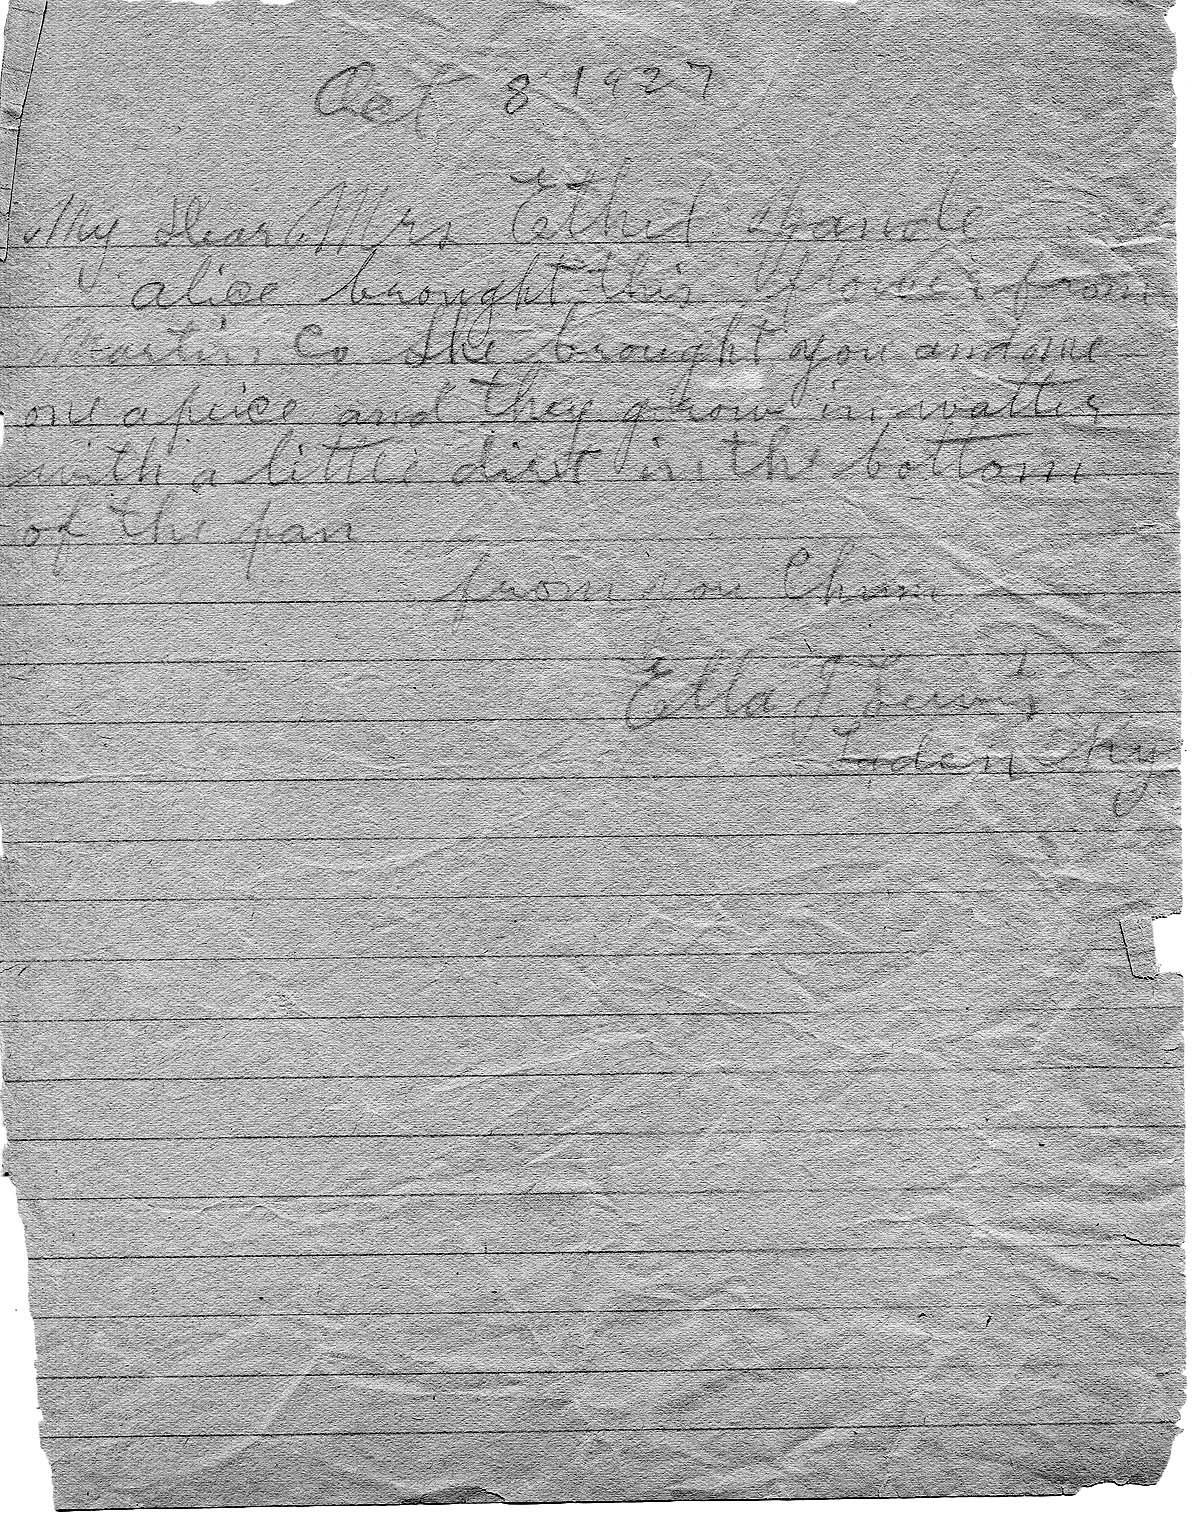 Oct 8 1927
My Dear Mrs Ethel
alice brought this flower from
Martin Co She brought you and me
one a peice and they grow in watter
with a little dirt in the bottom
of the pan
from you Chum
Ella Lewis
Ky